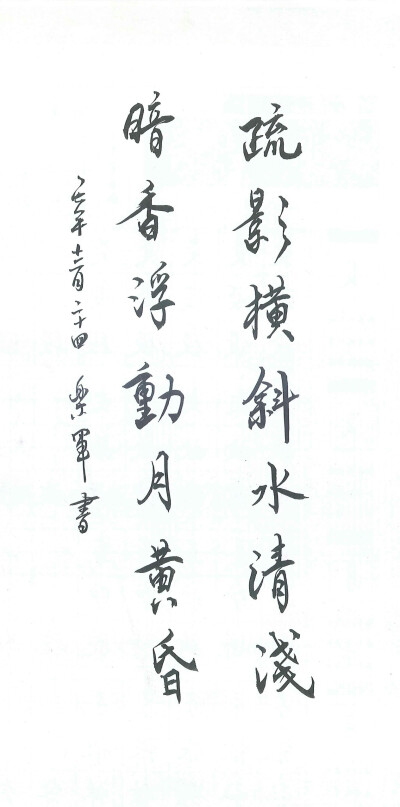 疏影橫斜水清淺
暗香浮動月黃昏
年十二月二十四 樂軍書